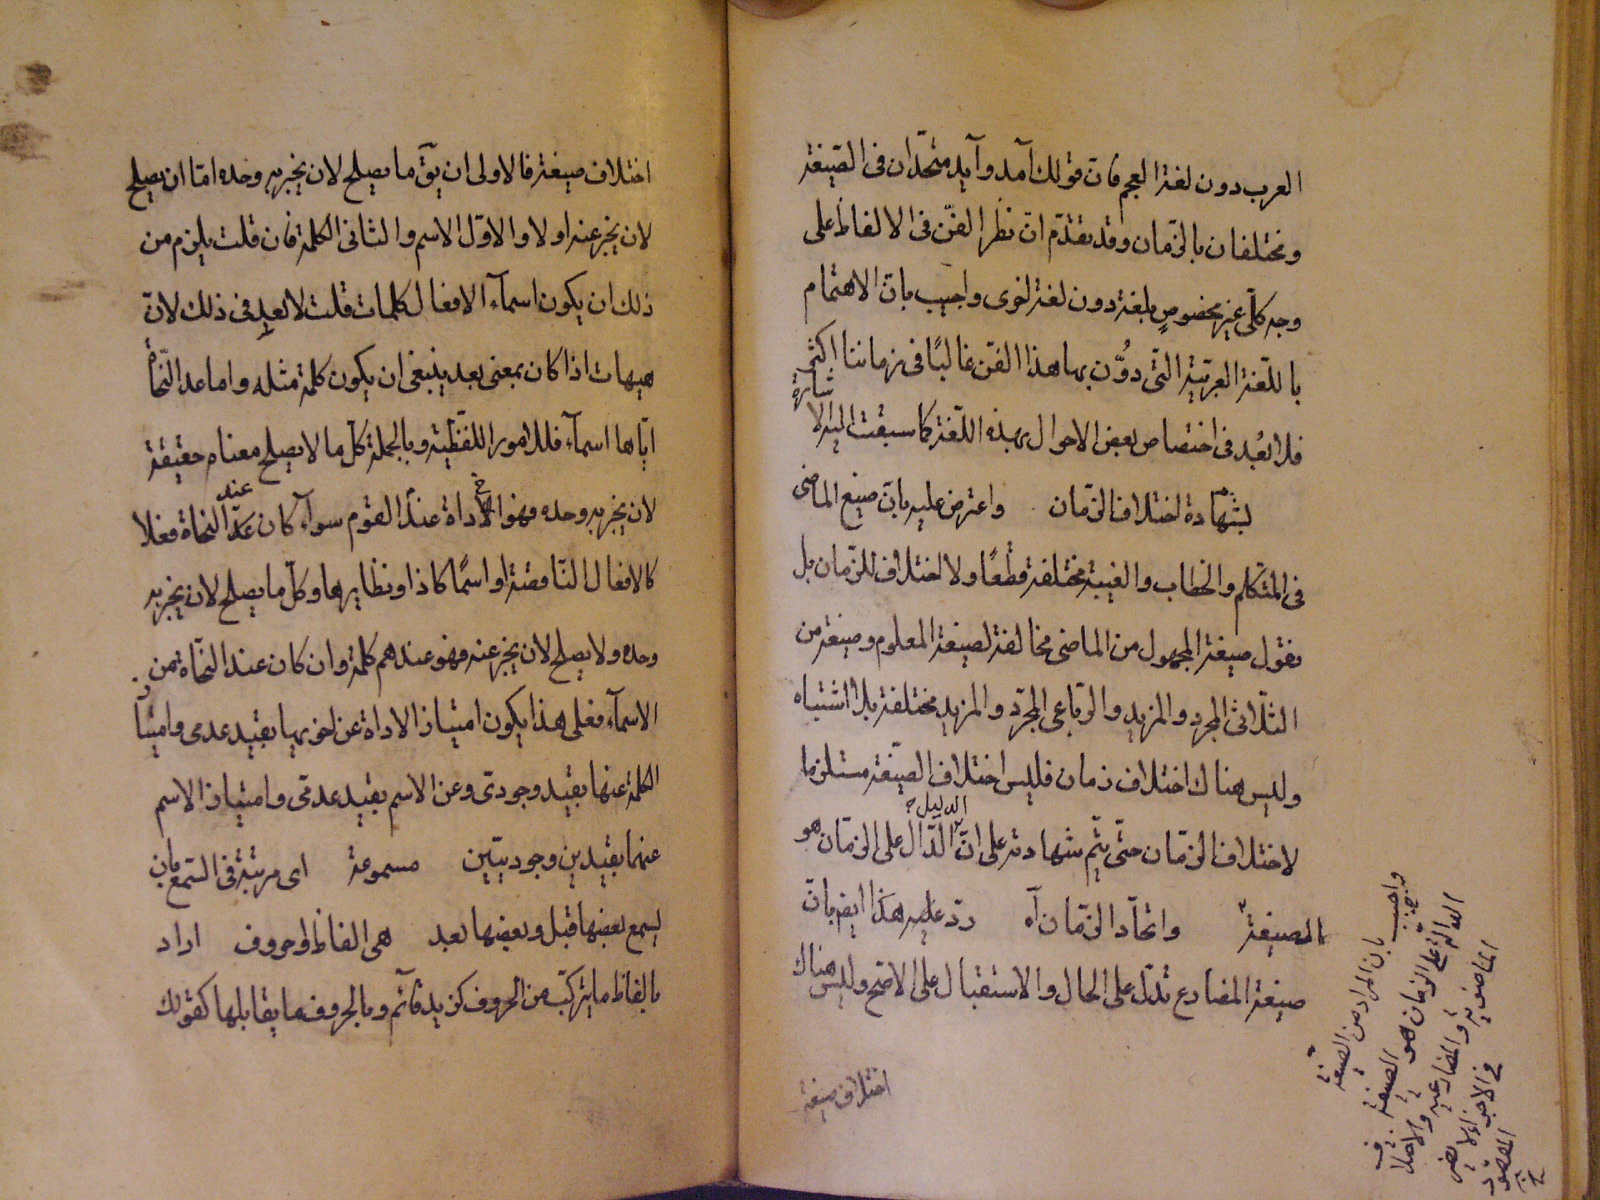 العرب دون لغة العجم فان قولك آمد وآيد متحدان فى الصيغة
ومختلفان بالزمان وقد تقدم ان نظر الفن فى الالفاظ على
وجه كلى غير مخصوص بلغة دون لغة اخرى واجيب بان الاهتمام
باللغة العربية التى دُوّن بها هذا الفن غالبًا فى زماننا اكثر
فلا بُعد فى اختصاص بعض الاحوال بهذه اللغة كما سبقت اليه الاشارة
بشهادة اختلاف الزمان واعترض عليه بان صيغ الماضى
فى المتكلم والخطاب والغيبة مختلفة قطعًا ولا اختلاف للزمان بل
نقول صيغة المجهول من الماضى مخالفة لصيغة المعلوم وصيغة من
الثلاثى المجرد والمزيد والرباعى المجرد والمزيد مختلفة بلا اشتباه
وليس هناك اختلاف زمان فليس اختلاف الصيغة مستلزما
لاختلاف الزمان حتى يتم شهادته على ان الدال على الزمان هو
الدليل
الصيغة واتحاد الزمان آه ردّ عليه هذا ايضا بان
صيغة المضارع تدل على الحال والاستقبال على الاصح وليس هناك
اختلاف صيغة
واجيب
بان المراد من الصيغة
الدالة على الزمان هو الصيغة
الماضوية والمضارعية والاختلاف
فى الاجزاء لا يضر
المقصود
اختلاف صيغة فالاولى ان يقّ ما يصلح لان يخبر به وحده اما ان يصلح
لان يخبر عنه اولا والاول الاسم والثانى الكلمة فان قلت يلزم من
ذلك ان يكون اسمآء الافعال كلمات قلت لا بعد فى ذلك لان
هيهات اذا كان بمعنى بعد ينبغى ان يكون كلمة مثله واما عد النحاة
اياها اسمآء فللامور اللفظية وبالجملة كل ما لا يصلح معناه حقيقة
لان يخبر به وحده فهو الاداة عند القوم سوآء كان عند النحاة فعلا
كالافعال الناقصة او اسمًا كاذا ونظايرها وكل ما يصلح لان يخبر به
وحده ولا يصلح لان يخبر عنه فهو عندهم كلمة وان كان عند النحاة من
الاسمآء فعلى هذا يكون امتياز الاداة عن اخويها بقيد عدمى وامتياز
الكلمة عنها بقيد وجودى وعن الاسم بقيد عدمى وامتياز الاسم
عنهما بقيدين وجوديين مسموعة اى مرتبة فى السمع بان
يسمع بعضها قبل وبعضها بعد هى الفاظ او حروف اراد
بالفاظ ما يتركب من الحروف كزيد قآئم وبالحروف ما يقابلها كقولك